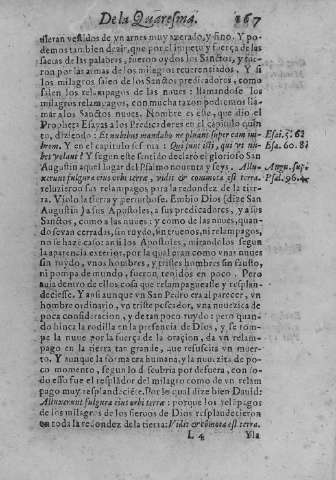 De la Quaresma. 167
uieran vestidos de vn arnes muy azerado, y fino. Y po
demos tambien dezir, que por el impetu y fuerça de las
saetas de las palabras, fueron oydos los Sanctos, y fue
ron por las armas de los milagros reuerenciados. Y si
los milagros salen de los Sanctos predicadores, como
salen los relampagos de las nuues: llamandose los
milagros relampagos, con mucha razon podremos lla
mar a los Sanctos nuues. Nombre es este, que dio el
Propheta Esayas a los Predicadores en el capitulo quin
to, diziendo: Et nubibus mandabo ne pluant super eam im
brem. Y en el capitulo sesenta: Qui sunt isti, qui vt nu
bes volant? Y segun este sentido declaró el glorioso San
Augustin aquel lugar del Psalmo nouenta y seys. Allu-
xerunt fulgura eius orbi terræ, vidit & commota est terra.
reluzieron sus relampagos para la redondez de la tier
ra. Violo la tierra y perturbose. Embio Dios (dize San
Augustin) a sus Apostoles, a sus predicadores, y a sus
Sanctos, como a las nuues: y como de las nues, quan-
do se van cerradas, sin ruydo, sin truenos, ni relampagos,
no se haze caso: ansi los Apostoles, mirandolos segun
la aparencia exterior, por la qual eran como vnas nuues
sin ruydo, vnos hombres, y tristes hombres sin fausto,
ni pompa de mundo, fueron tenidos en poco. Pero
auia dentro de ellos cosa que relampaguease y resplan-
deciesse. Y ansi aunque vn San Pedro era al parecer, vn
hombre ordinario, vn triste pescador, vna nuuezica de
poca consideracion, y de tan poco ruydo: pero quan-
do hinca la rodilla en la presencia de Dios, y se rom-
pe la nuue por la fuerça de la oraçion, da vn relam-
pago en la tierra tan grande, que resuscita vn muer-
to. Y aunque la forma era humana, y la nuuezita de po-
co momento, segun lo de se cubria por defuera, con to
do esso fue el resplãdor del milagro como de vn relam
pago muy resplandeciẽte. Por lo qual dize bien Dauid:
Alluxerunt fulgura eius orbi terræ: porque los relãpagos
de los milagros de los sieruos de Dios resplandecieron
en toda la redondez de la tierra: Vidit & cõmota est terra.
L 4 Y la
Esai. 5. 6 2
Esa. 60. 8
Augu. sup.
Psal. 96. 4